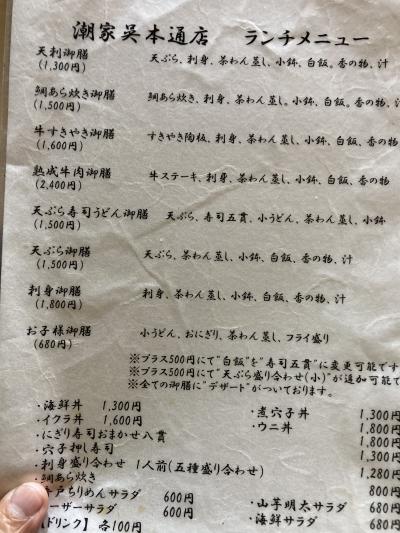 潮家呉本通店　ランチメニュー
天刺御膳　天ぷら、刺身、茶わん蒸し、小鉢、白飯。香の物、汁
(1,300円)
鯛あら炊き御膳　鯛あら炊き、刺身、茶わん蒸し。小鉢、白飯。香の物、汁
(1,500円)
牛すきやき御膳　すきやき陶板、刺身、茶わん蒸し、小鉢、白飯、香の物
(1,600円)
熟成牛肉御膳　牛ステーキ、刺身、茶わん蒸し、小鉢、白飯、香の物
(2,400円)
天ぷら寿司うどん御膳　天ぷら、寿司五貫、小うどん、茶わん蒸し、小鉢
(1,500円)
天ぷら御膳　天ぷら、茶わん蒸し、小鉢、白飯、香の物、汁
(1,500円)
刺身御膳　刺身、茶わん蒸し、小鉢、白飯、香の物、汁
(1,800円)
お子様御膳　小うどん、おにぎり、茶わん蒸し、フライ盛り
(680円)
※プラス500円にて"白飯"を"寿司五貫"に変更可能です
※プラス500円にて"天ぷら盛り合わせ(小)"が追加可能で
※全ての御膳に"デザート"がついております。
・海鮮丼　1,300円　・煮穴子丼　1,300円
・イクラ丼　1,600円　・ウニ丼　1,800円
・にぎり寿司おまかせ八貫　1,800円
・穴子押し寿司　1,300円
・刺身盛り合わせ　1人前(五種盛り合わせ)　1,280円
・鯛あら炊き　800円
戸ちりめんサラダ　600円　・山芋明太サラダ　680円
ーザーサラダ　600円　・海鮮サラダ　680円
【ドリンク】各100円